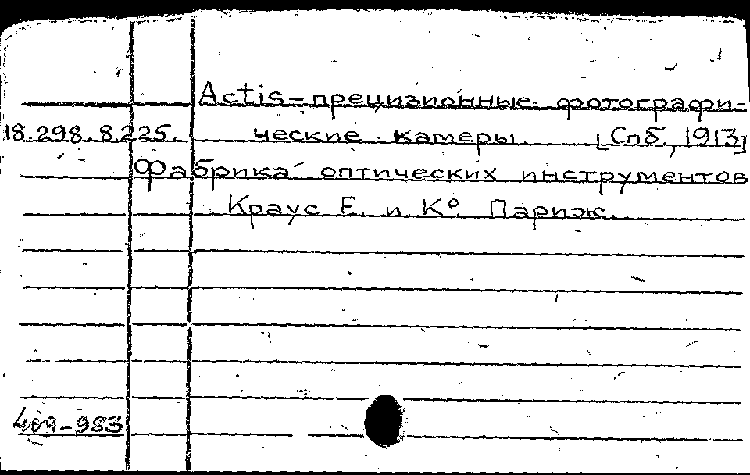 Actis-прецизионные фотографи-
18.298.8.225. ческие камеры. [Спб., 1913]
Фабрика оптических инструментов
Краус Е. и Ко. Париж.
409-983